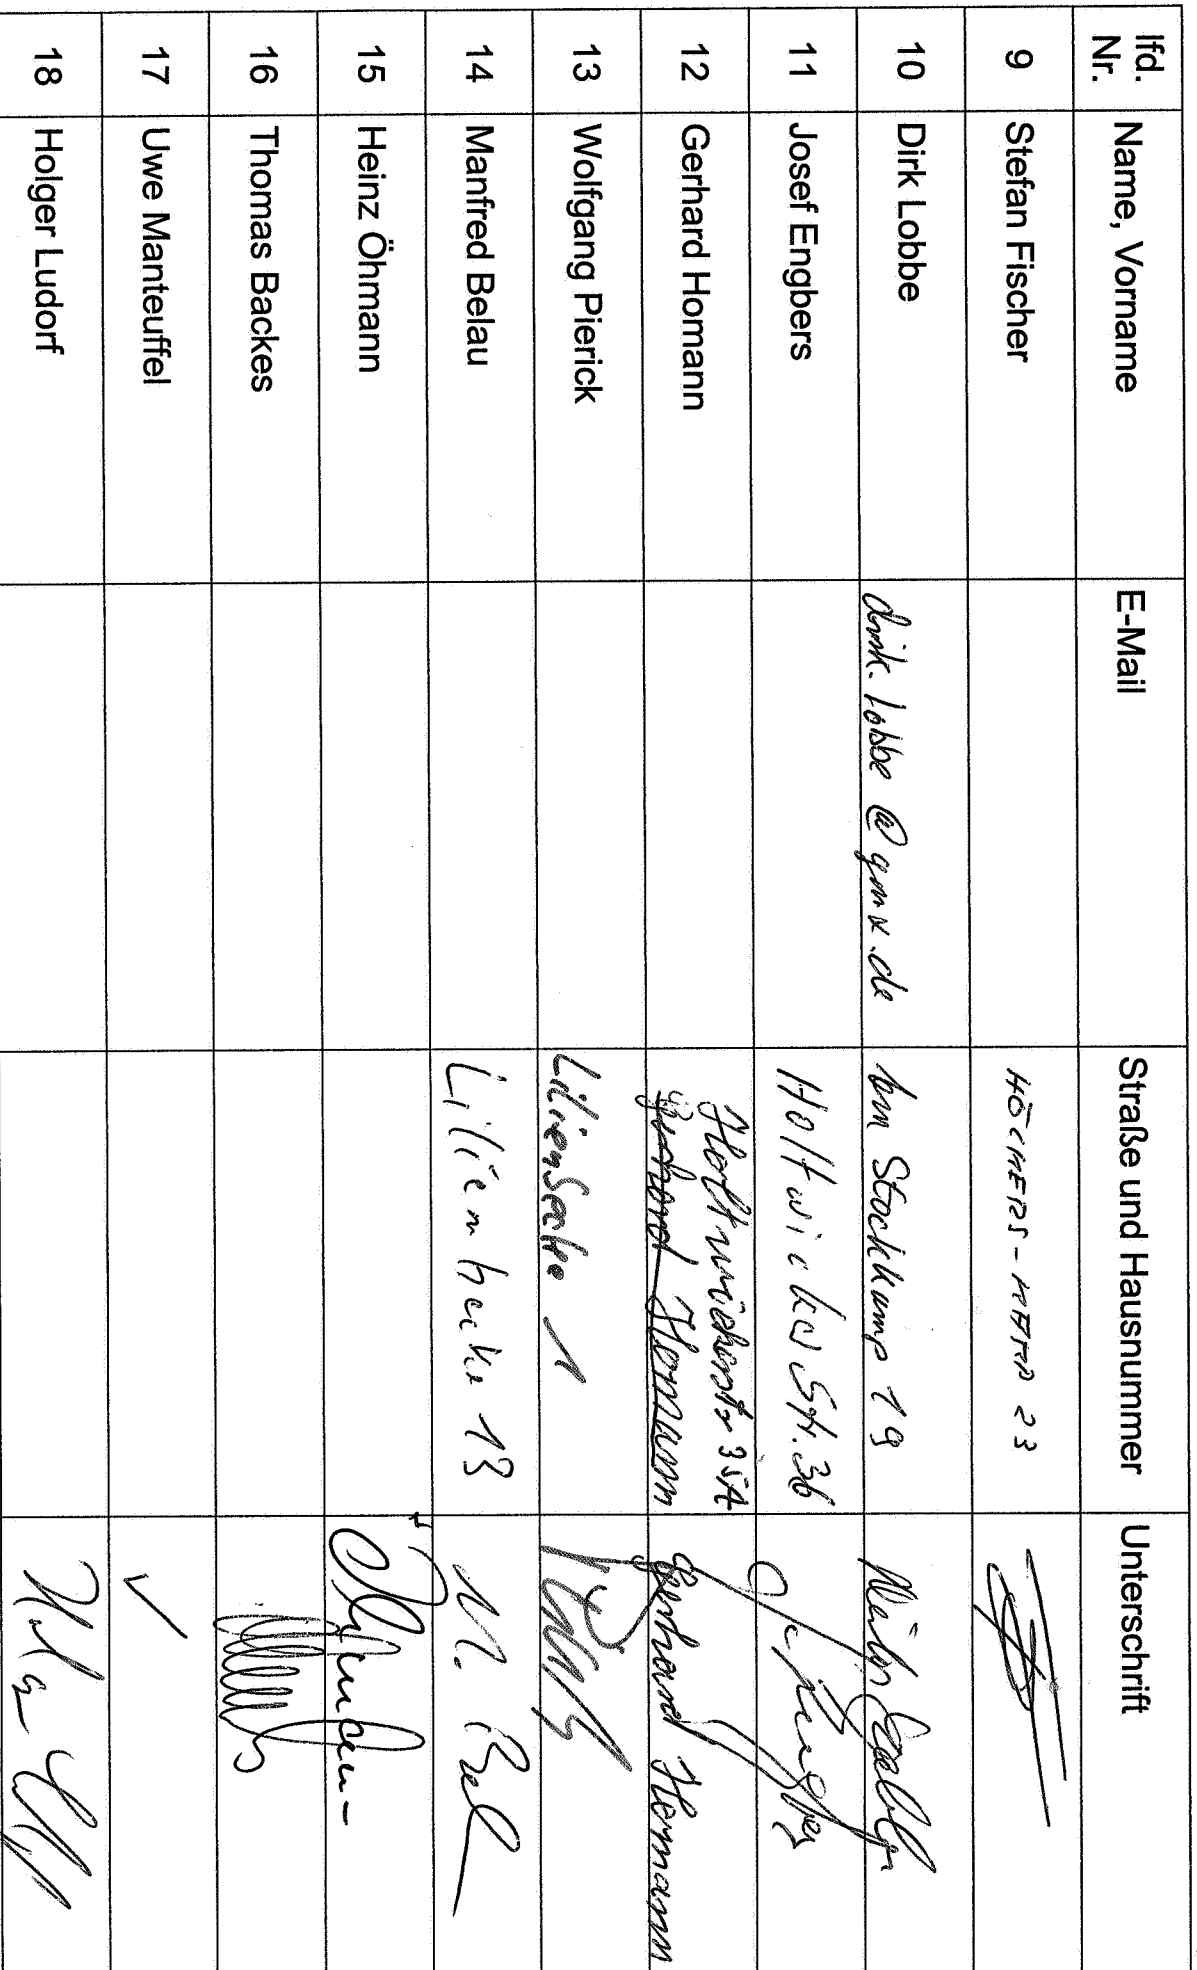 lfd. Nr. Name, Vorname E-Mail Straße und Hausnummer Unterschrift
9 Stefan Fischer 23
10 Dirk Lobbe dirk.lobbe@gmx.de Am Stockkamp 19
11 Josef Engbers Holtwicker Str. 36
12 Gerhard Homann Holtwickerstr 35A
Gerhard Homann Gerhard Homann
13 Wolfgang Pierick 1
14 Manfred Belau Lilienbecke 13 M. Bel
15 Heinz Öhmann
16 Thomas Backes
17 Uwe Manteuffel ✓
18 Holger Ludorf